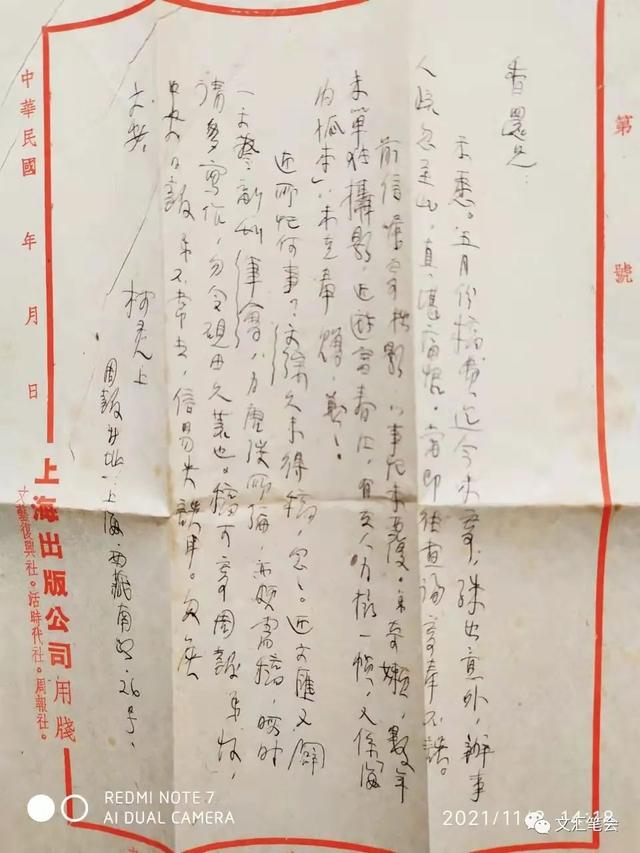 第 號
香還兄:
示悉。五月份稿費,迄今未寄,殊出意外,辦事
人疏忽至此,真堪痛恨。當即往查詢寄奉不誤。
前信囑寄攝影,以事忙未覆。弟奇懶,數年
未單獨攝影,近遊富春江,有友人為攝一幀,又係海
內孤本,未克奉贈,歉歉。
近所忙何事?文綴久未得稿,念念。近文匯又闢
一文藝副刊筆會,為唐弢所編,亦頗需稿,暇時
請多寫作,勿令硯田久蕪也。稿可寄周報弟收,
中央日報弟不常去,信易失誤耳。匆頌
文安
柯靈上
周報社址:上海西藏南路26號、
上海出版公司用牋
文藝復興社。活時代社。周報社。
中華民國 年 月 日
REDMI NOTE 7
AI DUAL CAMERA
2021/11/3 14:18
文汇笔会